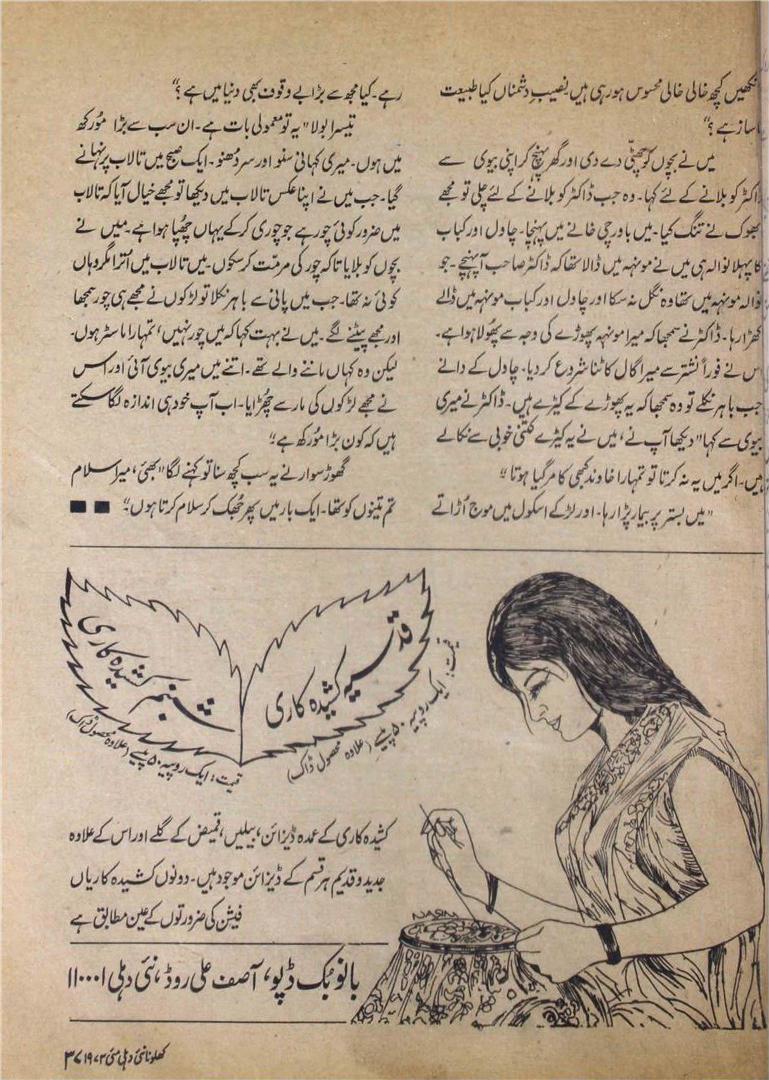 آنکھیں کچھ خالی خالی محسوس ہو رہی ہیں نصیبِ دشمناں کیا طبیعت
ناساز ہے؟“
میں نے بچوں کو چھٹی دے دی اور گھر پہنچ کر اپنی بیوی سے
ڈاکٹر کو بلانے کے لئے کہا۔ وہ جب ڈاکٹر کو بلانے کے لئے چلی تو مجھے
بھوک نے تنگ کیا۔ میں باورچی خانے میں پہنچا۔ چاول اور کباب
کا پہلا نوالہ ہی میں نے مونہہ میں ڈالا تھا کہ ڈاکٹر صاحب آ پہنچے۔ جو
نوالہ مونہہ میں تھا وہ نگل نہ سکا اور چاول اور کباب مونہہ میں ڈالے
کھڑا رہا۔ ڈاکٹر نے سمجھا کہ میرا مونہہ پھوڑے کی وجہ سے پھولا ہوا ہے۔
اس نے فوراً نشتر سے میرا گال کاٹنا شروع کر دیا۔ چاول کے دانے
جب باہر نکلے تو وہ سمجھا کہ یہ پھوڑے کے کیڑے ہیں۔ ڈاکٹر نے میری
بیوی سے کہا ”دیکھا آپ نے، میں نے یہ کیڑے کتنی خوبی سے نکالے
ہیں۔ اگر میں یہ نہ کرتا تو تمہارا خاوند کبھی کا مر گیا ہوتا“
”میں بستر پر بیمار پڑا رہا۔ اور لڑکے اسکول میں موج اُڑاتے
رہے۔ کیا مجھ سے بڑا بے وقوف بھی دنیا میں ہے؟“
تیسرا بولا ”یہ تو معمولی بات ہے۔ ان سب سے بڑا مُورکھ
میں ہوں۔ میری کہانی سنو اور سر دُھنو۔ ایک صبح میں تالاب پر نہانے
گیا۔ جب میں نے اپنا عکس تالاب میں دیکھا تو مجھے خیال آیا کہ تالاب
میں ضرور کوئی چور ہے جو چوری کر کے یہاں چھُپا ہوا ہے۔ میں نے
بچوں کو بلایا تاکہ چور کی مرمّت کر سکوں۔ میں تالاب میں اُترا مگر وہاں
کوئی نہ تھا۔ جب میں پانی سے باہر نکلا تو لڑکوں نے مجھے ہی چور سمجھا
اور مجھے پیٹنے لگے۔ میں نے بہت کہا کہ میں چور نہیں، تمہارا ماسٹر ہوں۔
لیکن وہ کہاں ماننے والے تھے۔ اتنے میں میری بیوی آئی اور اس
نے مجھے لڑکوں کی مار سے چھُڑایا۔ اب آپ خود ہی اندازہ لگا سکتے
ہیں کہ کون بڑا مُورکھ ہے“
گھوڑ سوار نے یہ سب کچھ سنا تو کہنے لگا ”بھئی، میرا سلام
تم تینوں کو تھا۔ ایک بار میں پھر جھک کر سلام کرتا ہوں“
قدسیہ کشیدہ کاری
قیمت: ایک روپیہ ۵۰ پیسے (علاوہ محصول ڈاک)
شبنم کشیدہ کاری
قیمت: ایک روپیہ ۵۰ پیسے (علاوہ محصول ڈاک)
کشیدہ کاری کے عمدہ ڈیزائن، بیلیں، قمیض کے گلے اور اس کے علاوہ
جدید و قدیم ہر قسم کے ڈیزائن موجود ہیں۔ دونوں کشیدہ کاریاں
فیشن کی ضرورتوں کے عین مطابق ہے
NASIM
بانو بُک ڈپو، آصف علی روڈ، نئی دہلی ۱۱۰۰۰۱
کھلونا نئی دہلی مئی ۱۹۷۳ ۳۷